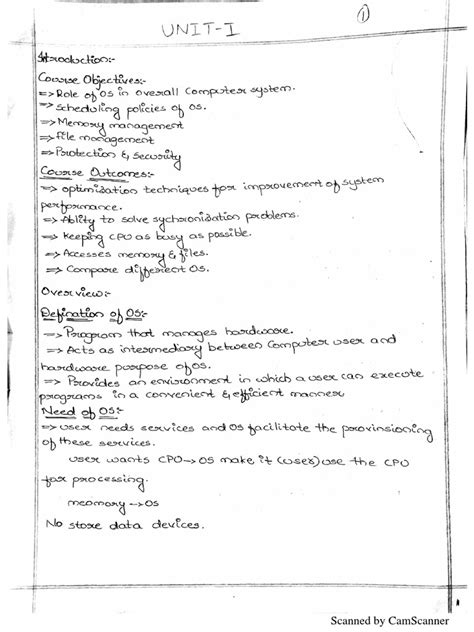 1
UNIT-I
Introduction:-
Course Objectives:-
=> Role of OS in overall Computer system.
=> Scheduling policies of OS.
=> Memory management
=> File management
=> Protection & security
Course Outcomes:-
=> optimisation techniques for improvement of system
performance.
=> Ability to solve sychronisation problems.
=> Keeping CPU as busy as possible.
=> Accesses memory & files.
=> Compare different OS.
Overview:-
Defination of OS:-
=> Program that manages hardware.
=> Acts as intermediary between Computer user and
hardware purpose of OS.
=> Provides an environment in which a user can execute
programs in a convenient & efficient manner
Need of OS:-
=> user needs services and OS facilitate the provinsioning
of these services.
user wants CPU → OS make it (user) use the CPU
for processing.
meomory → OS
No store data devices.
Scanned by CamScanner